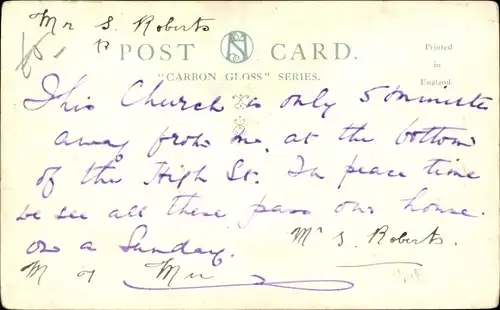 Mr S. Roberts
POST CARD.
"CARBON GLOSS" SERIES.
Printed
in
England
This Church is only 5 minutes
away from me, at the bottom
of the High St. In peace time
we see all these pass our house
on a Sunday.
Mr S. Roberts.
M